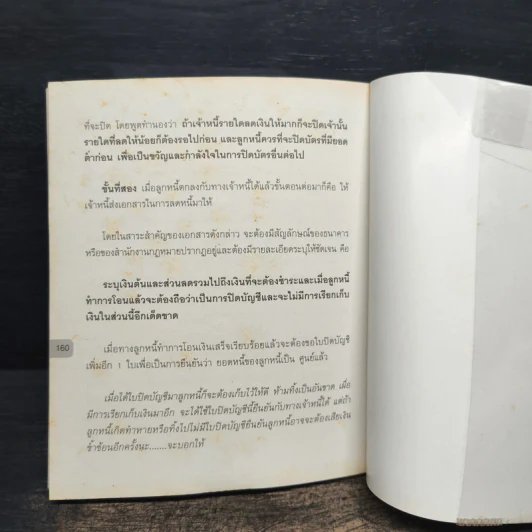 ที่จะปิด โดยพูดทำนองว่า ถ้าเจ้าหนี้รายใดลดเงินให้มากก็จะปิดเจ้านั้น
รายใดที่ลดให้น้อยก็ต้องรอไปก่อน และลูกหนี้ควรที่จะปิดบัตรที่มียอด
ต่ำก่อน เพื่อเป็นขวัญและกำลังใจในการปิดบัตรอื่นต่อไป
ขั้นที่สอง เมื่อลูกหนี้ตกลงกับทางเจ้าหนี้ได้แล้วขั้นตอนต่อมาก็คือ ให้
เจ้าหนี้ส่งเอกสารในการลดหนี้มาให้
โดยในสาระสำคัญของเอกสารดังกล่าว จะต้องมีสัญลักษณ์ของธนาคาร
หรือของสำนักงานกฎหมายปรากฏอยู่และต้องมีรายละเอียดระบุให้ชัดเจน คือ
ระบุเงินต้นและส่วนลดรวมไปถึงเงินที่จะต้องชำระและเมื่อลูกหนี้
ทำการโอนแล้วจะต้องถือว่าเป็นการปิดบัญชีและจะไม่มีการเรียกเก็บ
เงินในส่วนนี้อีกเด็ดขาด
160
เมื่อทางลูกหนี้ทำการโอนเงินเสร็จเรียบร้อยแล้วจะต้องขอใบปิดบัญชี
เพิ่มอีก 1 ใบเพื่อเป็นการยืนยันว่า ยอดหนี้ของลูกหนี้เป็น ศูนย์แล้ว
เมื่อได้ใบปิดบัญชีมาลูกหนี้ก็จะต้องเก็บไว้ให้ดี ห้ามทิ้งเป็นอันขาด เมื่อ
มีการเรียกเก็บเงินมาอีก จะได้ใช้ใบปิดบัญชีนี้ยืนยันกับทางเจ้าหนี้ได้ แต่ถ้า
ลูกหนี้เกิดทำหายหรือทิ้งไปไม่มีใบปิดบัญชียืนยันลูกหนี้อาจจะต้องเสียเงิน
ซ้ำซ้อนอีกครั้งนะ.......จะบอกให้